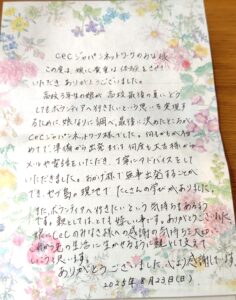 CECジャパンネットワークのみな様
この度は、娘に貴重な体験をさせて
いただきありがとうございました。
高校3年生の娘が高校最後の夏にどう
してもボランティアへ行きたいという思いを実現す
るために娘なりに調べ、最後に決めたところが
CECジャパンネットワーク様でした。何もかもが初
めてで、準備から出発まで何度も
メールや電話をいただき、丁寧にアドバイスをして
いただきました。おかげ様で無事出発することが
でき、セブ島の現地でたくさんの学びがありました。
また、ボランティアへ行きたいという気持ちもあるよう
です。親としてはとても嬉しい事です。ありがとうございました。
娘にもCECのみなさま方への感謝の気持ちを忘れ
これからの生活に生かせるように親として支えて
いこうと思います。
ありがとうございました。心より感謝します
2025年8月23日